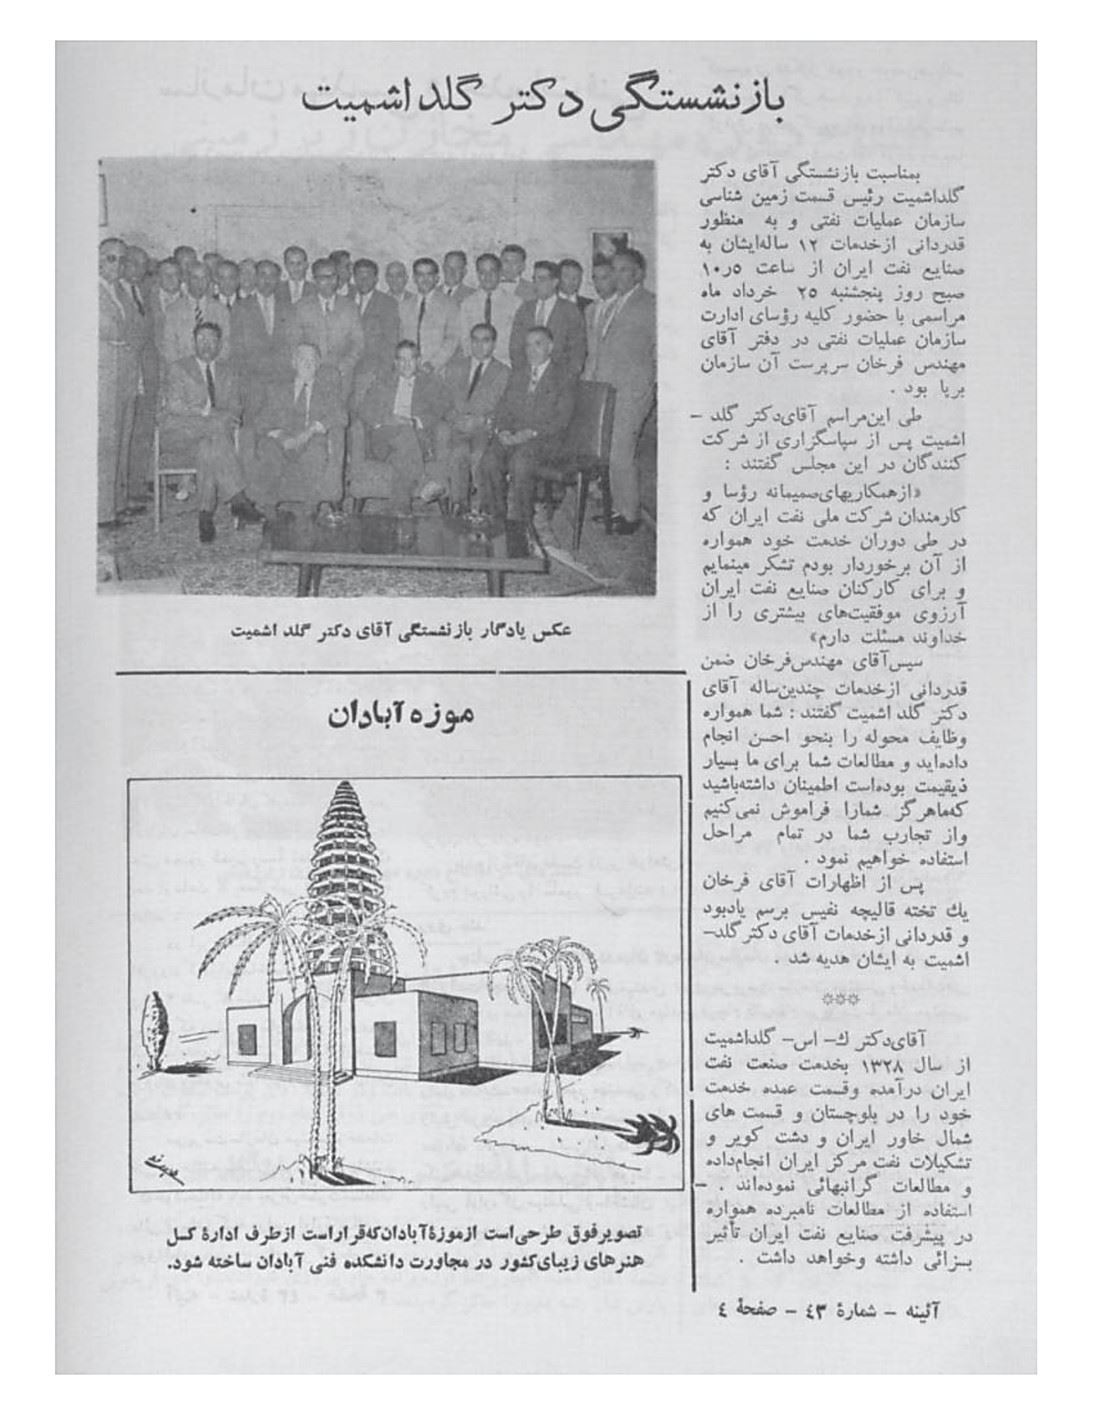 بازنشستگی دکتر گلداشمیت
بمناسبت بازنشستگی آقای دکتر
گلداشمیت رئیس قسمت زمین شناسی
سازمان عملیات نفتی و به منظور
قدردانی ازخدمات ۱۲ ساله‌ایشان به
صنایع نفت ایران از ساعت ۱۰ر۵
صبح روز پنجشنبه ۲۵ خرداد ماه
مراسمی با حضور کلیه رؤسای ادارت
سازمان عملیات نفتی در دفتر آقای
مهندس فرخان سرپرست آن سازمان
برپا بود .
طی این‌مراسم آقای‌دکتر گلد –
اشمیت پس از سپاسگزاری از شرکت
کنندگان در این مجلس گفتند :
«ازهمکاریهای‌صمیمانه رؤسا و
کارمندان شرکت ملی نفت ایران که
در طی دوران خدمت خود همواره
از آن برخوردار بودم تشکر مینمایم
و برای کارکنان صنایع نفت ایران
آرزوی موفقیت‌های بیشتری را از
خداوند مسئلت دارم»
سپس‌آقای مهندس‌فرخان ضمن
قدردانی ازخدمات چندین‌ساله آقای
دکتر گلد اشمیت گفتند : شما همواره
وظایف محوله را بنحو احسن انجام
داده‌اید و مطالعات شما برای ما بسیار
ذیقیمت بوده‌است اطمینان داشته‌باشید
که‌ماهرگز شمارا فراموش نمی‌کنیم
واز تجارب شما در تمام مراحل
استفاده خواهیم نمود .
پس از اظهارات آقای فرخان
یك تخته قالیچه نفیس برسم یادبود
و قدردانی ازخدمات آقای دکترگلد–
اشمیت به ایشان هدیه شد .
***
آقای‌دکتر ك– اس– گلداشمیت
از سال ۱۳۲۸ بخدمت صنعت نفت
ایران درآمده وقسمت عمده خدمت
خود را در بلوچستان و قسمت های
شمال خاور ایران و دشت کویر و
تشکیلات نفت مرکز ایران انجام‌داده
و مطالعات گرانبهائی نموده‌اند . –
استفاده از مطالعات نامبرده همواره
در پیشرفت صنایع نفت ایران تأثیر
بسزائی داشته وخواهد داشت .
عکس یادگار بازنشستگی آقای دکتر گلد اشمیت
موزه آبادان
تصویرفوق طرحی‌است ازموزهٔ‌آبادان‌که‌قراراست ازطرف ادارهٔ کل
هنرهای زیبای‌کشور در مجاورت دانشکده فنی آبادان ساخته شود.
آئینه – شمارهٔ ۴۳ – صفحهٔ ۴